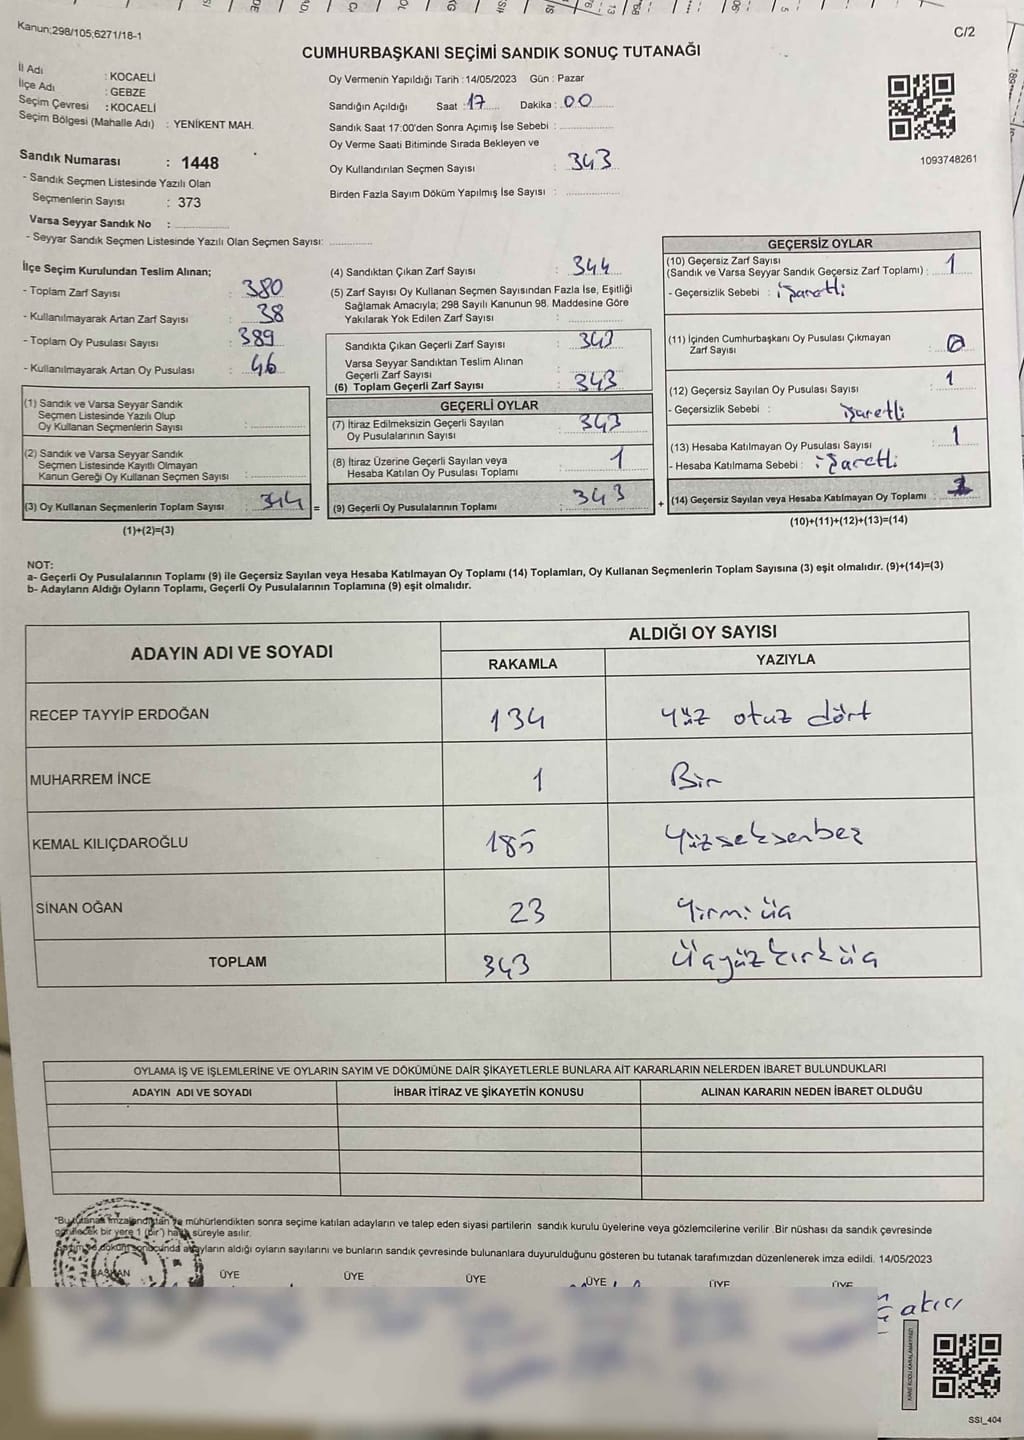 Kanun:298/105;6271/18-1
C/2
CUMHURBAŞKANI SEÇİMİ SANDIK SONUÇ TUTANAĞI
İl Adı : KOCAELİ
İlçe Adı : GEBZE
Seçim Çevresi : KOCAELİ
Seçim Bölgesi (Mahalle Adı) : YENİKENT MAH.
Sandık Numarası : 1448
- Sandık Seçmen Listesinde Yazılı Olan
Seçmenlerin Sayısı : 373
Varsa Seyyar Sandık No :
- Seyyar Sandık Seçmen Listesinde Yazılı Olan Seçmen Sayısı:
Oy Vermenin Yapıldığı Tarih :14/05/2023 Gün : Pazar
Sandığın Açıldığı Saat : 17 Dakika : 00
Sandık Saat 17:00'den Sonra Açımış İse Sebebi :
Oy Verme Saati Bitiminde Sırada Bekleyen ve
Oy Kullandırılan Seçmen Sayısı : 343
Birden Fazla Sayım Döküm Yapılmış İse Sayısı :
1093748261
İlçe Seçim Kurulundan Teslim Alınan;
- Toplam Zarf Sayısı : 380
- Kullanılmayarak Artan Zarf Sayısı : 38
- Toplam Oy Pusulası Sayısı : 389
- Kullanılmayarak Artan Oy Pusulası : 46
(1) Sandık ve Varsa Seyyar Sandık
Seçmen Listesinde Yazılı Olup
Oy Kullanan Seçmenlerin Sayısı :
(2) Sandık ve Varsa Seyyar Sandık
Seçmen Listesinde Kayıtlı Olmayan
Kanun Gereği Oy Kullanan Seçmen Sayısı :
(3) Oy Kullanan Seçmenlerin Toplam Sayısı : 344 =
(1)+(2)=(3)
(4) Sandıktan Çıkan Zarf Sayısı : 344
(5) Zarf Sayısı Oy Kullanan Seçmen Sayısından Fazla İse, Eşitliği
Sağlamak Amacıyla; 298 Sayılı Kanunun 98. Maddesine Göre
Yakılarak Yok Edilen Zarf Sayısı :
Sandıkta Çıkan Geçerli Zarf Sayısı : 343
Varsa Seyyar Sandıktan Teslim Alınan
Geçerli Zarf Sayısı :
(6) Toplam Geçerli Zarf Sayısı : 343
GEÇERLİ OYLAR
(7) İtiraz Edilmeksizin Geçerli Sayılan
Oy Pusulalarının Sayısı : 343
(8) İtiraz Üzerine Geçerli Sayılan veya
Hesaba Katılan Oy Pusulası Toplamı : 1
(9) Geçerli Oy Pusulalarının Toplamı : 343 +
GEÇERSİZ OYLAR
(10) Geçersiz Zarf Sayısı
(Sandık ve Varsa Seyyar Sandık Geçersiz Zarf Toplamı) : 1
- Geçersizlik Sebebi : işaretli
(11) İçinden Cumhurbaşkanı Oy Pusulası Çıkmayan
Zarf Sayısı :
(12) Geçersiz Sayılan Oy Pusulası Sayısı : 1
- Geçersizlik Sebebi : işaretli
(13) Hesaba Katılmayan Oy Pusulası Sayısı : 1
- Hesaba Katılmama Sebebi : işaretli
(14) Geçersiz Sayılan veya Hesaba Katılmayan Oy Toplamı :
(10)+(11)+(12)+(13)=(14)
NOT:
a- Geçerli Oy Pusulalarının Toplamı (9) ile Geçersiz Sayılan veya Hesaba Katılmayan Oy Toplamı (14) Toplamları, Oy Kullanan Seçmenlerin Toplam Sayısına (3) eşit olmalıdır. (9)+(14)=(3)
b- Adayların Aldığı Oyların Toplamı, Geçerli Oy Pusulalarının Toplamına (9) eşit olmalıdır.
ADAYIN ADI VE SOYADI ALDIĞI OY SAYISI
RAKAMLA YAZIYLA
RECEP TAYYİP ERDOĞAN 134 yüz otuz dört
MUHARREM İNCE 1 Bir
KEMAL KILIÇDAROĞLU 185 Yüzseksenbeş
SİNAN OĞAN 23 Yirmi üç
TOPLAM 343 Üçyüzkırküç
OYLAMA İŞ VE İŞLEMLERİNE VE OYLARIN SAYIM VE DÖKÜMÜNE DAİR ŞİKAYETLERLE BUNLARA AİT KARARLARIN NELERDEN İBARET BULUNDUKLARI
ADAYIN ADI VE SOYADI İHBAR İTİRAZ VE ŞİKAYETİN KONUSU ALINAN KARARIN NEDEN İBARET OLDUĞU
"Bu tutanak imzalandıktan ve mühürlendikten sonra seçime katılan adayların ve talep eden siyasi partilerin sandık kurulu üyelerine veya gözlemcilerine verilir .Bir nüshası da sandık çevresinde
görülecek bir yere 1 (bir) hafta süreyle asılır.
Sayım ve döküm sonucunda adayların aldığı oyların sayılarını ve bunların sandık çevresinde bulunanlara duyurulduğunu gösteren bu tutanak tarafımızdan düzenlenerek imza edildi. 14/05/2023
BAŞKAN ÜYE ÜYE ÜYE ÜYE ÜYE ÜYE
SSI_404